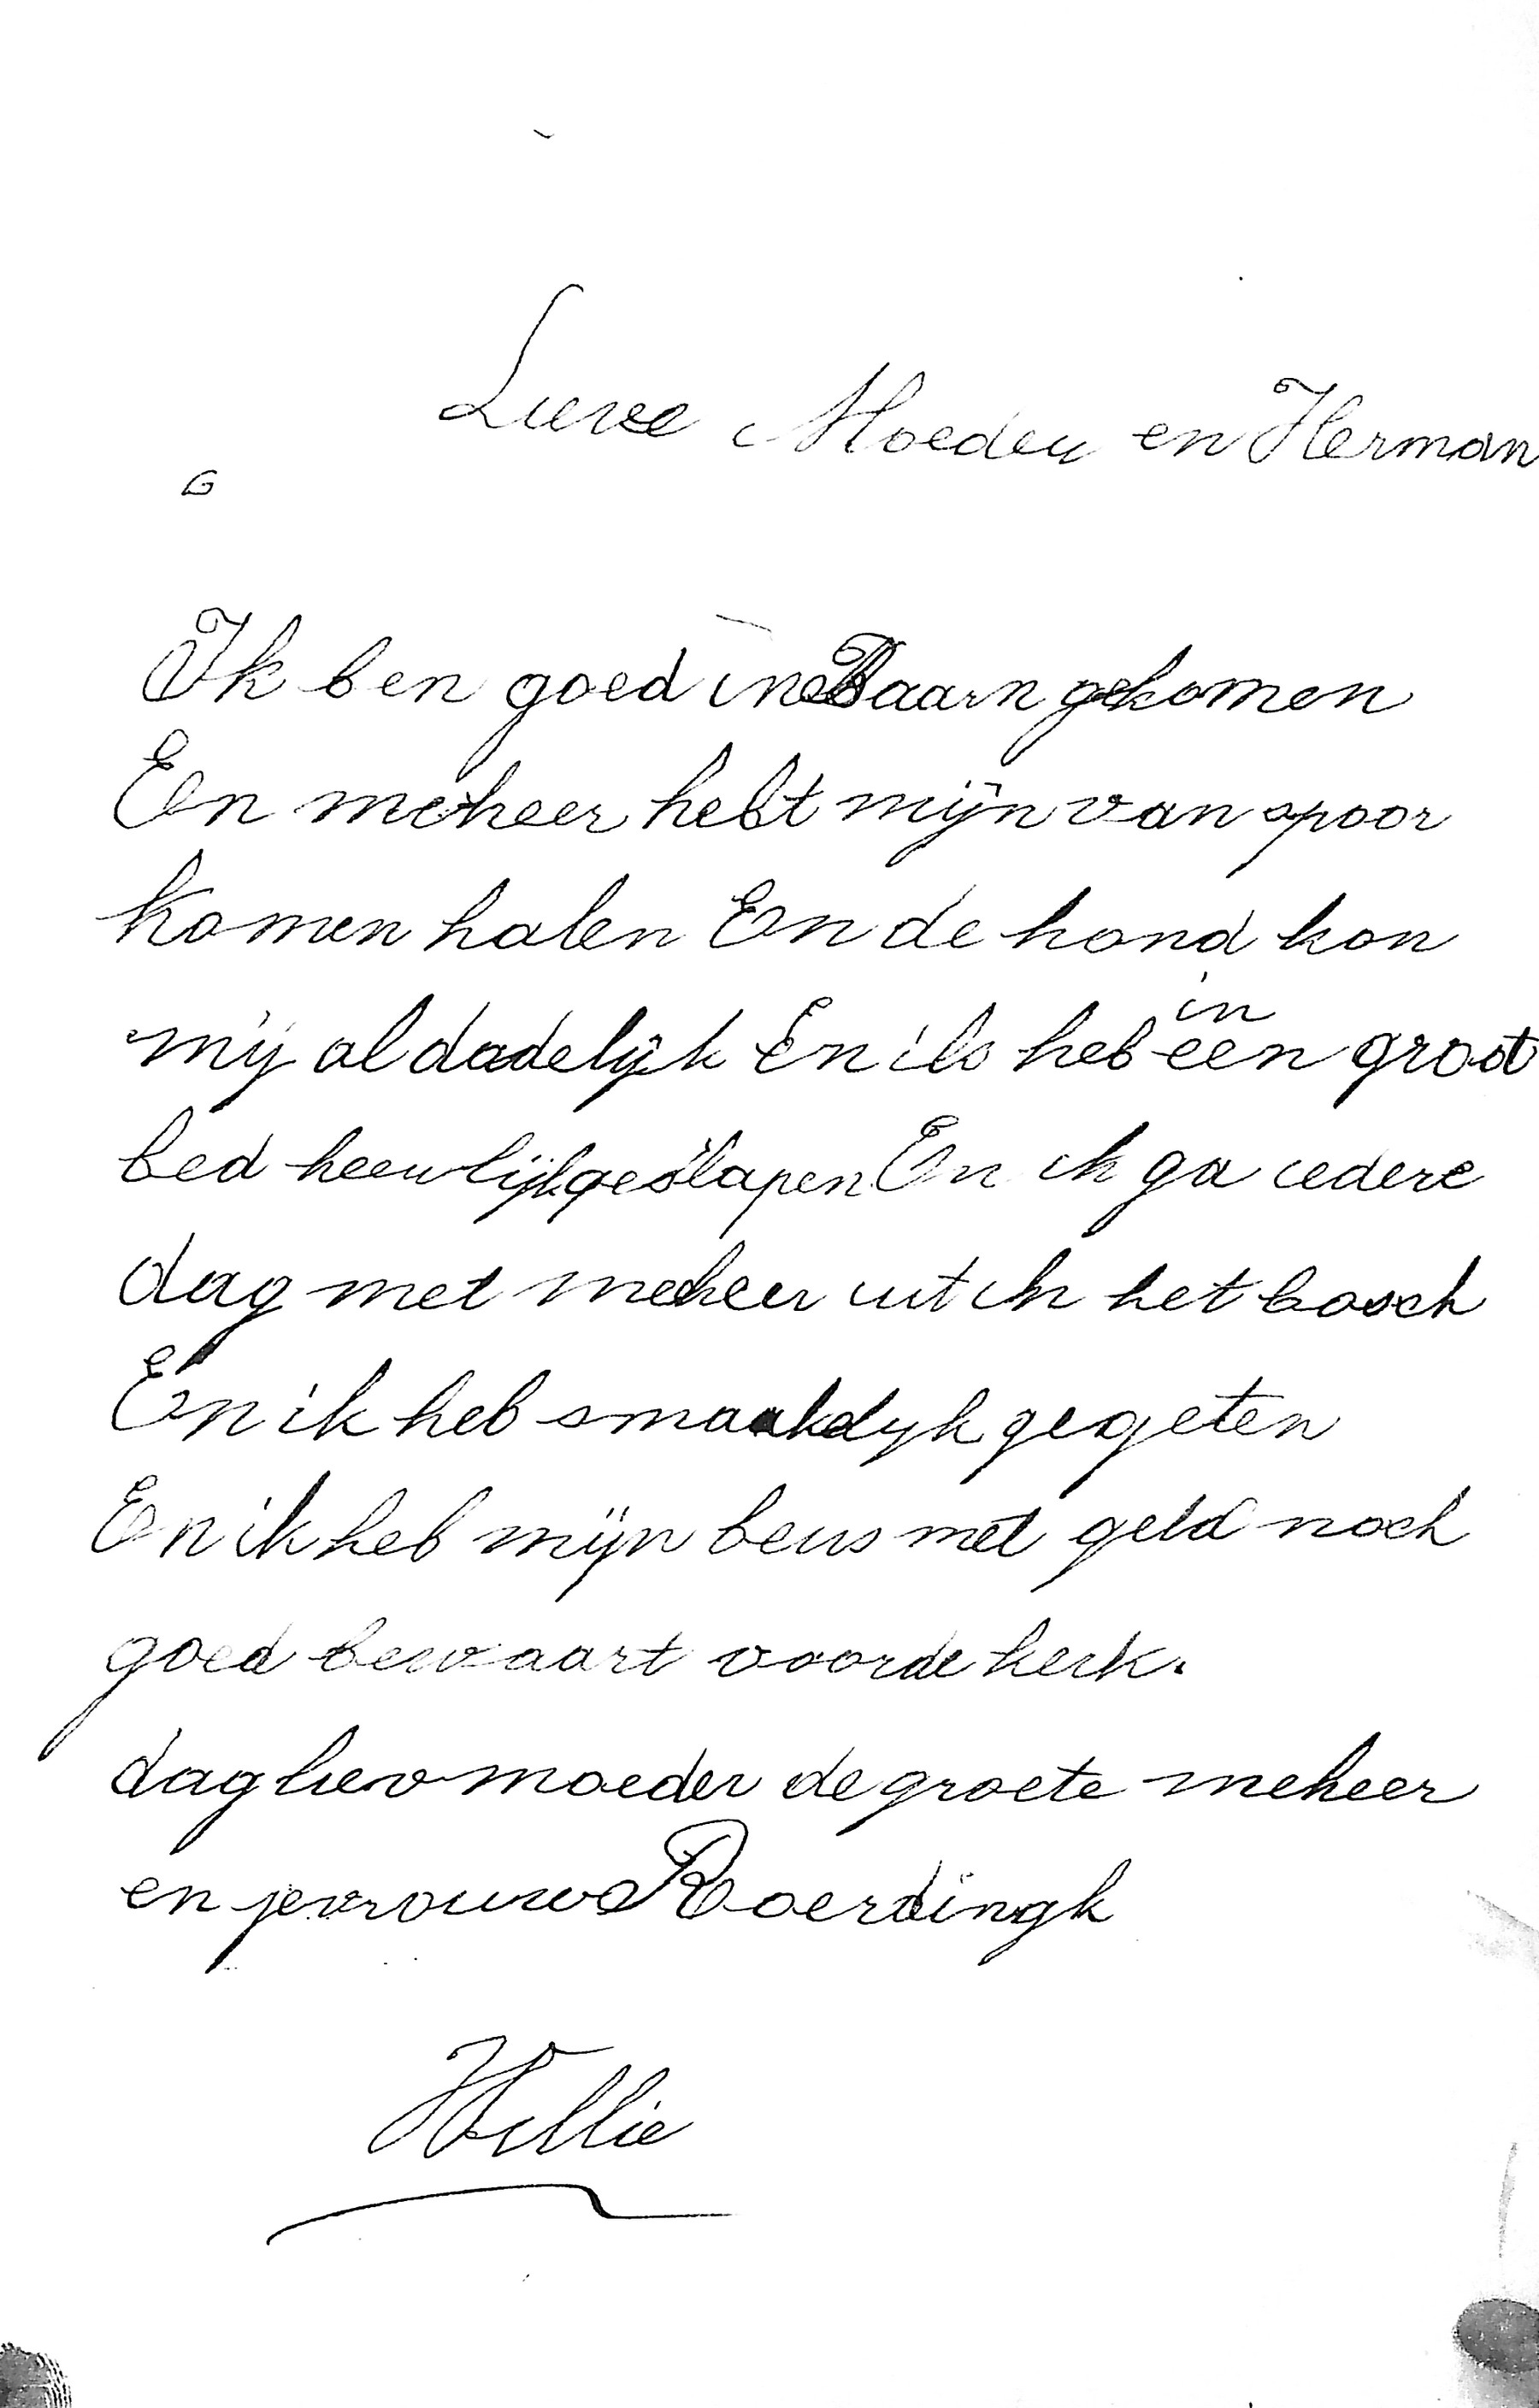 Lieve Moeder en Herman
Ik ben goed in Baarn gekomen
En meheer hebt mijn van spoor
komen halen En de hond kon
mij al dadelijk En ik heb in een groot
bed heerlijk geslapen En ik ga iedere
dag met meheer uit in het bosch
En ik heb smaakelyk gegeten
En ik heb mijn beus met geld noch
goed bewaart voor de kerk.
dag liev moeder de groete meheer
en jevrouw Roerdingk
Willie